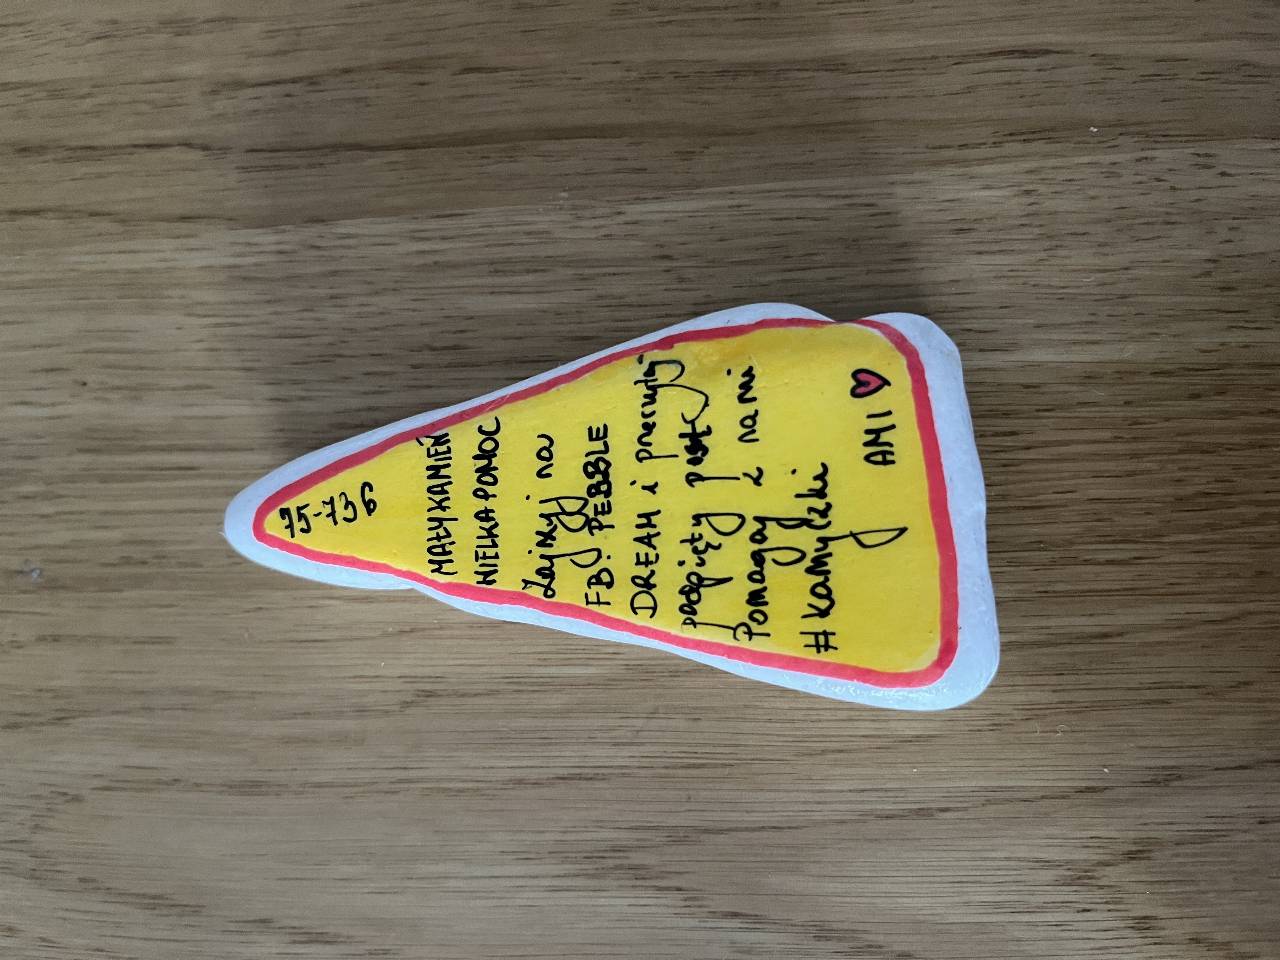 75-736
MAŁY KAMIEŃ
WIELKA POMOC
Zajrzyj na
FB: PEBBLE
DREAM i przeczytaj
podpięty post
Pomagaj z nami
#kamyczki
AMI ♥